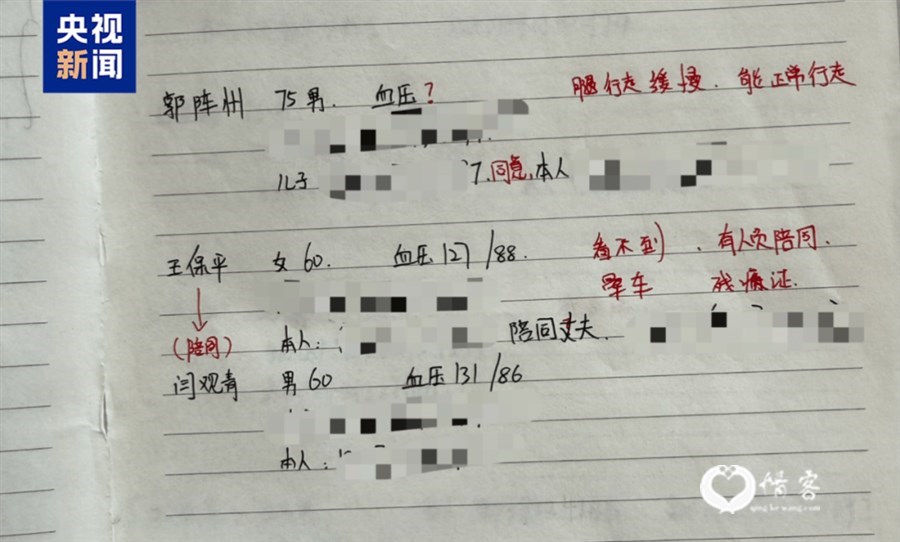 央视
新闻
郭阵州 75男. 血压? 腿行走缓慢. 能正常行走
儿子 7.同意,本人
王保平 女60. 血压127/88. 看不到. 有人员陪同.
晕车 残疾证.
(陪同) 本人: 陪同丈夫.
闫观青 男60 血压131/86
本人:
情客
qingkewang.com